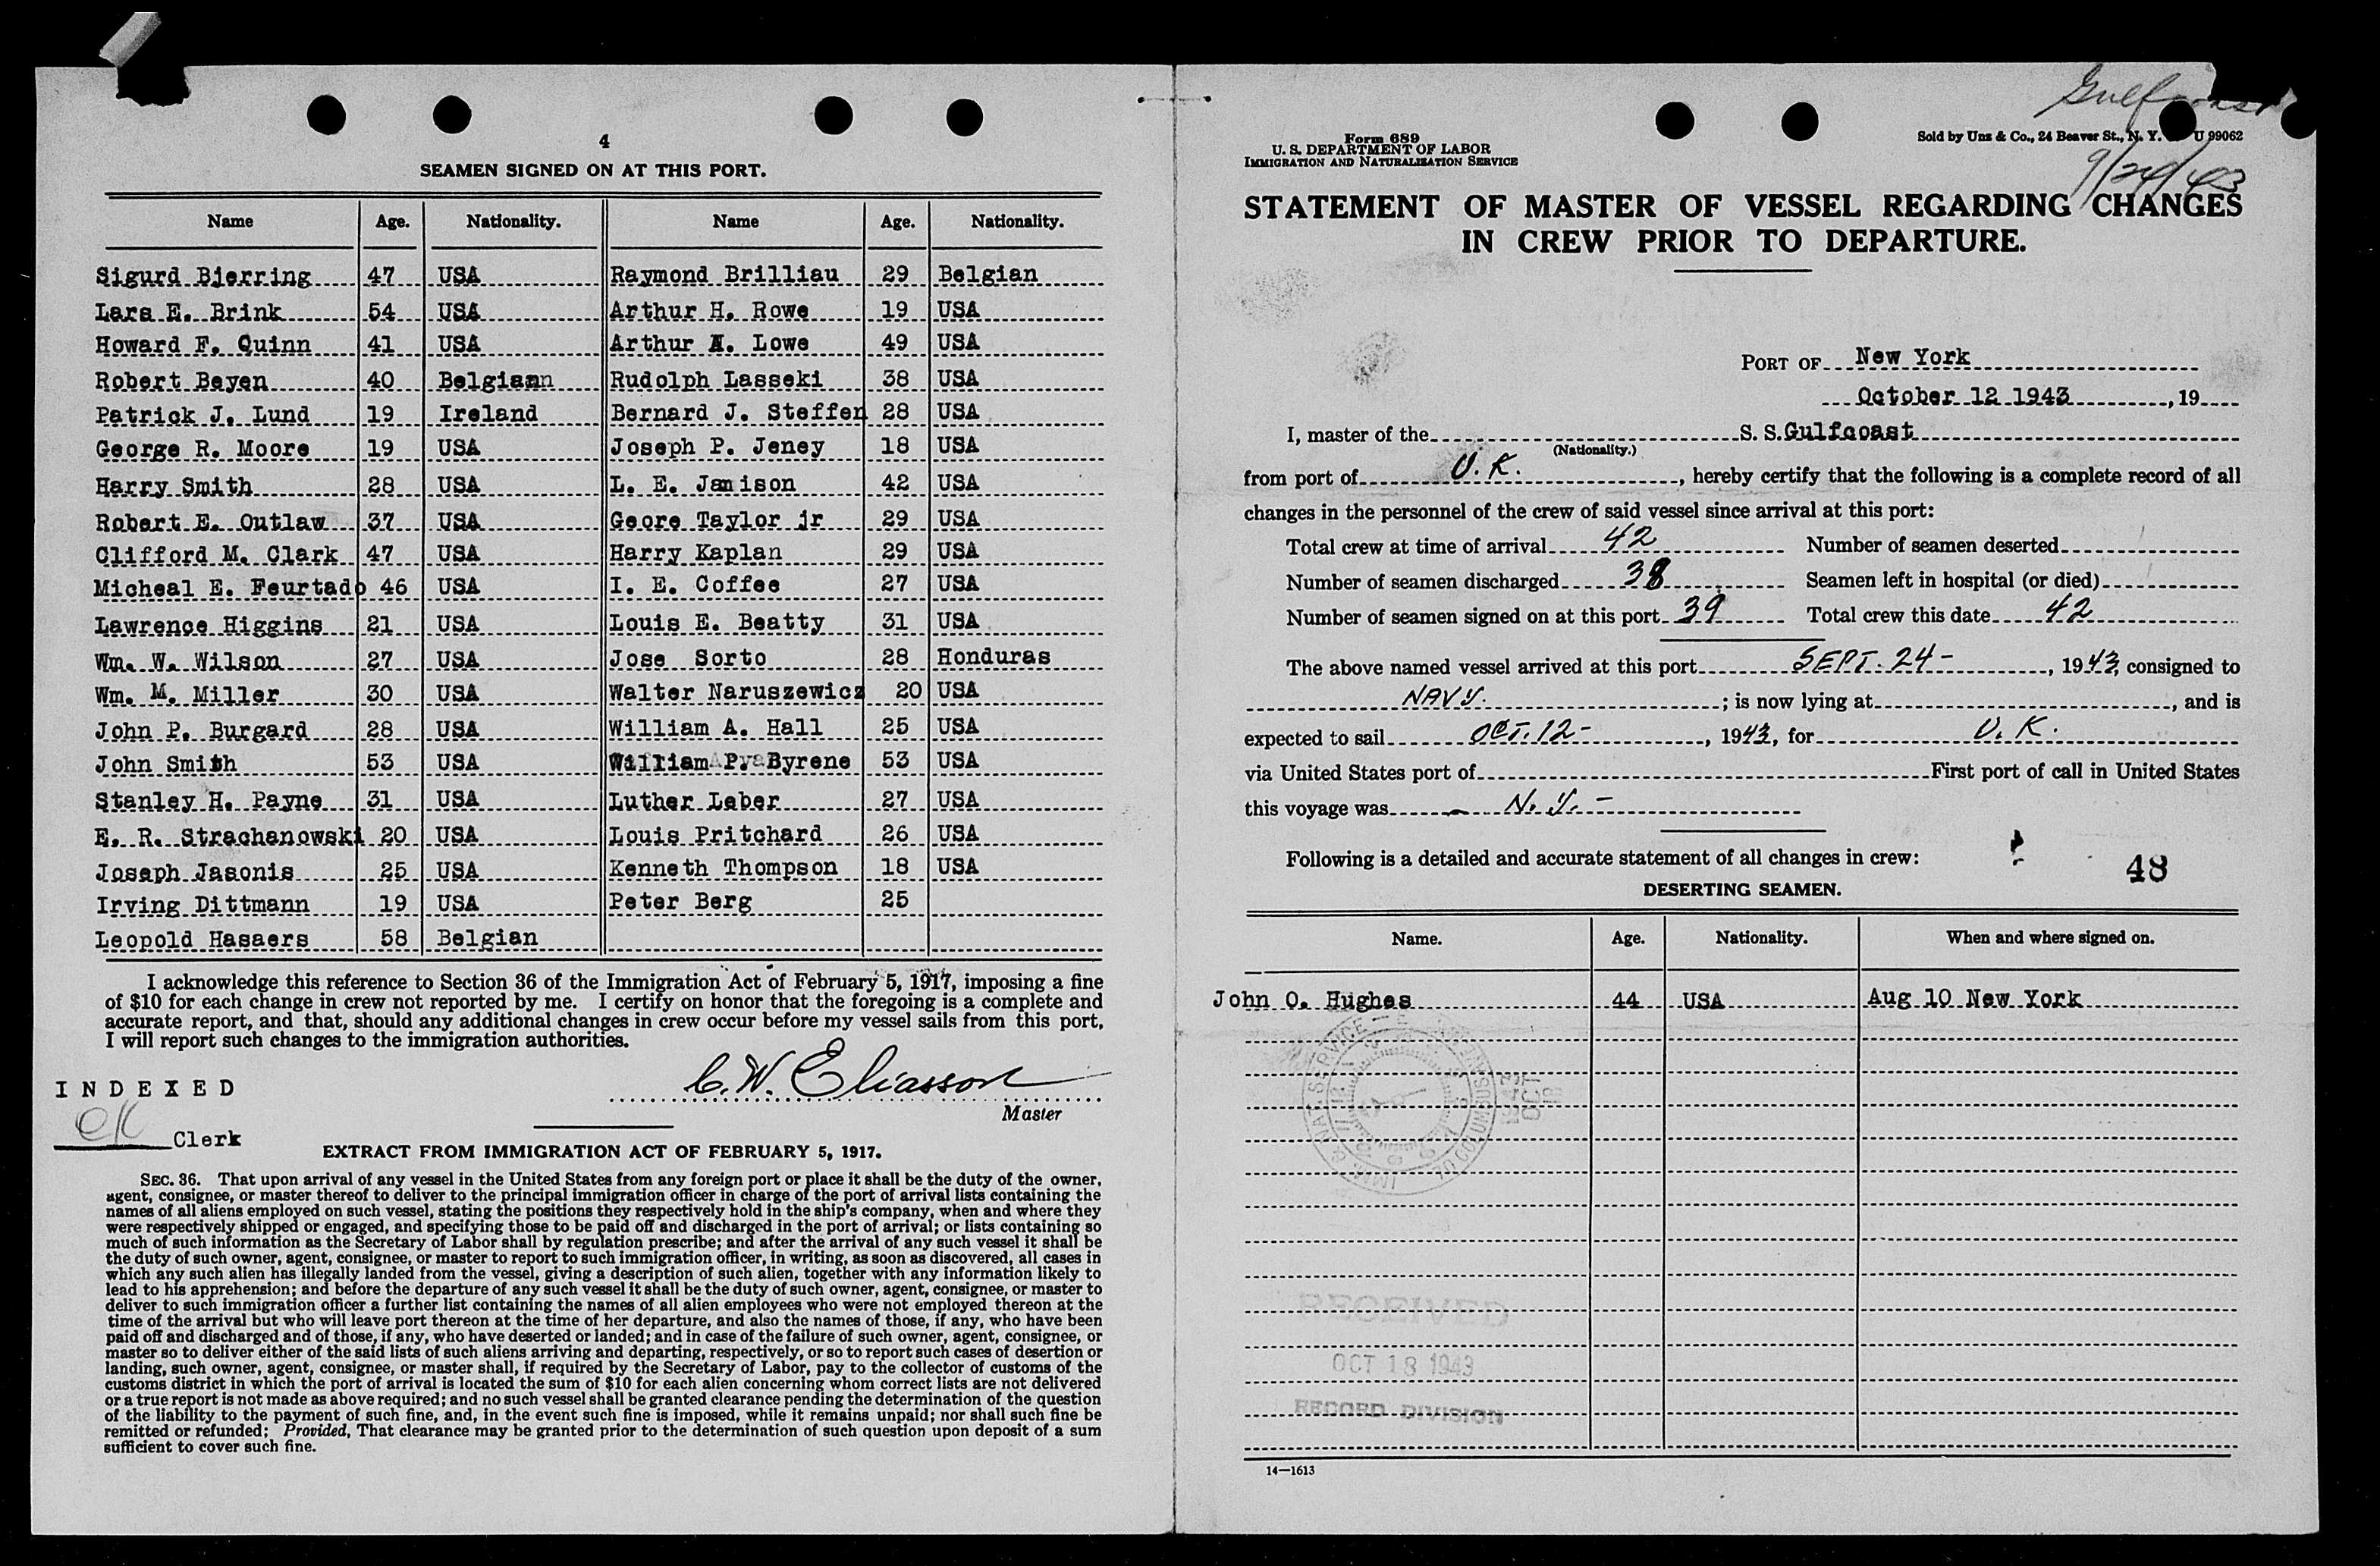 4
SEAMEN SIGNED ON AT THIS PORT.
Name Age. Nationality. Name Age. Nationality.
Sigurd Bjerring 47 USA Raymond Brilliau 29 Belgian
Lars E. Brink 54 USA Arthur H. Rowe 19 USA
Howard F. Quinn 41 USA Arthur N. Lowe 49 USA
Robert Beyen 40 Belgiann Rudolph Lasseki 38 USA
Patrick J. Lund 19 Ireland Bernard J. Steffen 28 USA
George R. Moore 19 USA Joseph P. Jeney 18 USA
Harry Smith 28 USA L. E. Jamison 42 USA
Robert E. Outlaw 37 USA Geore Taylor jr 29 USA
Clifford M. Clark 47 USA Harry Kaplan 29 USA
Micheal E. Feurtado 46 USA I. E. Coffee 27 USA
Lawrence Higgins 21 USA Louis E. Beatty 31 USA
Wm. W. Wilson 27 USA Jose Sorto 28 Honduras
Wm. M. Miller 30 USA Walter Naruszewicz 20 USA
John P. Burgard 28 USA William A. Hall 25 USA
John Smith 53 USA William P. Byrene 53 USA
Stanley H. Payne 31 USA Luther Leber 27 USA
E. R. Strachanowski 20 USA Louis Pritchard 26 USA
Joseph Jasonis 25 USA Kenneth Thompson 18 USA
Irving Dittmann 19 USA Peter Berg 25
Leopold Hasaers 58 Belgian
I acknowledge this reference to Section 36 of the Immigration Act of February 5, 1917, imposing a fine
of $10 for each change in crew not reported by me. I certify on honor that the foregoing is a complete and
accurate report, and that, should any additional changes in crew occur before my vessel sails from this port,
I will report such changes to the immigration authorities.
C. W. Eliasson
Master
INDEXED
CK Clerk
EXTRACT FROM IMMIGRATION ACT OF FEBRUARY 5, 1917.
SEC. 36. That upon arrival of any vessel in the United States from any foreign port or place it shall be the duty of the owner,
agent, consignee, or master thereof to deliver to the principal immigration officer in charge of the port of arrival lists containing the
names of all aliens employed on such vessel, stating the positions they respectively hold in the ship's company, when and where they
were respectively shipped or engaged, and specifying those to be paid off and discharged in the port of arrival; or lists containing so
much of such information as the Secretary of Labor shall by regulation prescribe; and after the arrival of any such vessel it shall be
the duty of such owner, agent, consignee, or master to report to such immigration officer, in writing, as soon as discovered, all cases in
which any such alien has illegally landed from the vessel, giving a description of such alien, together with any information likely to
lead to his apprehension; and before the departure of any such vessel it shall be the duty of such owner, agent, consignee, or master to
deliver to such immigration officer a further list containing the names of all alien employees who were not employed thereon at the
time of the arrival but who will leave port thereon at the time of her departure, and also the names of those, if any, who have been
paid off and discharged and of those, if any, who have deserted or landed; and in case of the failure of such owner, agent, consignee, or
master so to deliver either of the said lists of such aliens arriving and departing, respectively, or so to report such cases of desertion or
landing, such owner, agent, consignee, or master shall, if required by the Secretary of Labor, pay to the collector of customs of the
customs district in which the port of arrival is located the sum of $10 for each alien concerning whom correct lists are not delivered
or a true report is not made as above required; and no such vessel shall be granted clearance pending the determination of the question
of the liability to the payment of such fine, and, in the event such fine is imposed, while it remains unpaid; nor shall such fine be
remitted or refunded; Provided, That clearance may be granted prior to the determination of such question upon deposit of a sum
sufficient to cover such fine.
Gulfcoast
Form 689
U. S. DEPARTMENT OF LABOR
IMMIGRATION AND NATURALIZATION SERVICE
Sold by Unz & Co., 24 Beaver St., N. Y. U 99062
9/24/43
STATEMENT OF MASTER OF VESSEL REGARDING CHANGES
IN CREW PRIOR TO DEPARTURE.
PORT OF New York
October 12 1943, 19
I, master of the S. S. Gulfcoast
(Nationality.)
from port of U.K., hereby certify that the following is a complete record of all
changes in the personnel of the crew of said vessel since arrival at this port:
Total crew at time of arrival 42 Number of seamen deserted
Number of seamen discharged 38 Seamen left in hospital (or died)
Number of seamen signed on at this port 39 Total crew this date 42
The above named vessel arrived at this port SEPT. 24-, 1943, consigned to
NAVY.; is now lying at, and is
expected to sail OCT. 12-, 1943, for U.K.
via United States port of First port of call in United States
this voyage was - N.Y. -
Following is a detailed and accurate statement of all changes in crew:
48
DESERTING SEAMEN.
Name. Age. Nationality. When and where signed on.
John O. Hughes 44 USA Aug 10 New York
RECEIVED
OCT 18 1943
RECORD DIVISION
14—1613